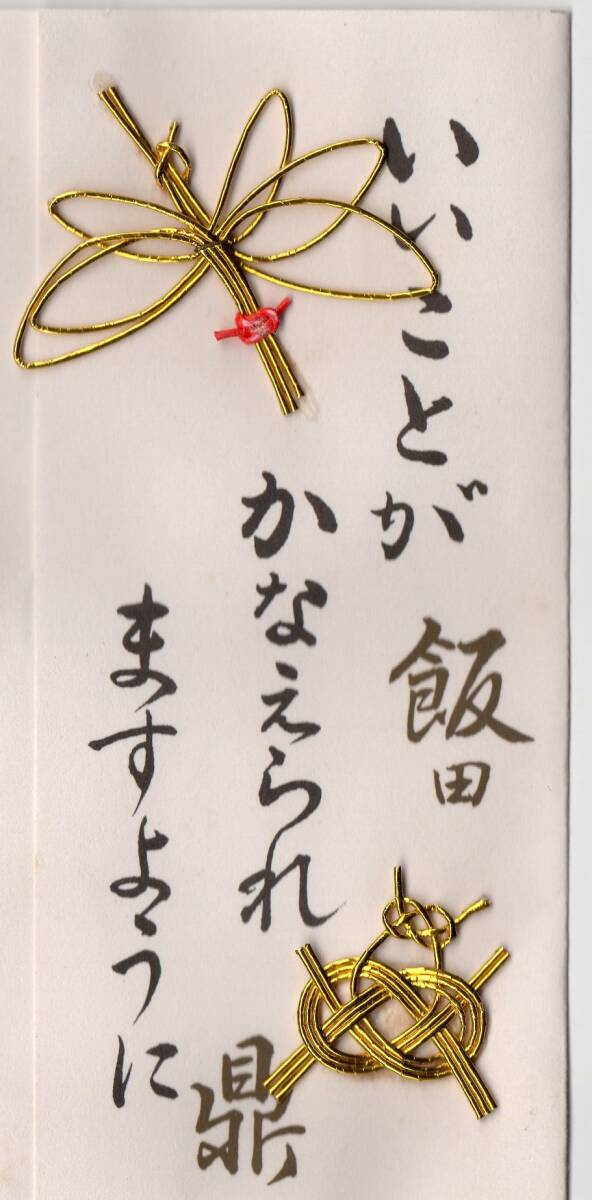 いいことが
飯田
かなえられ
ますように
鼎